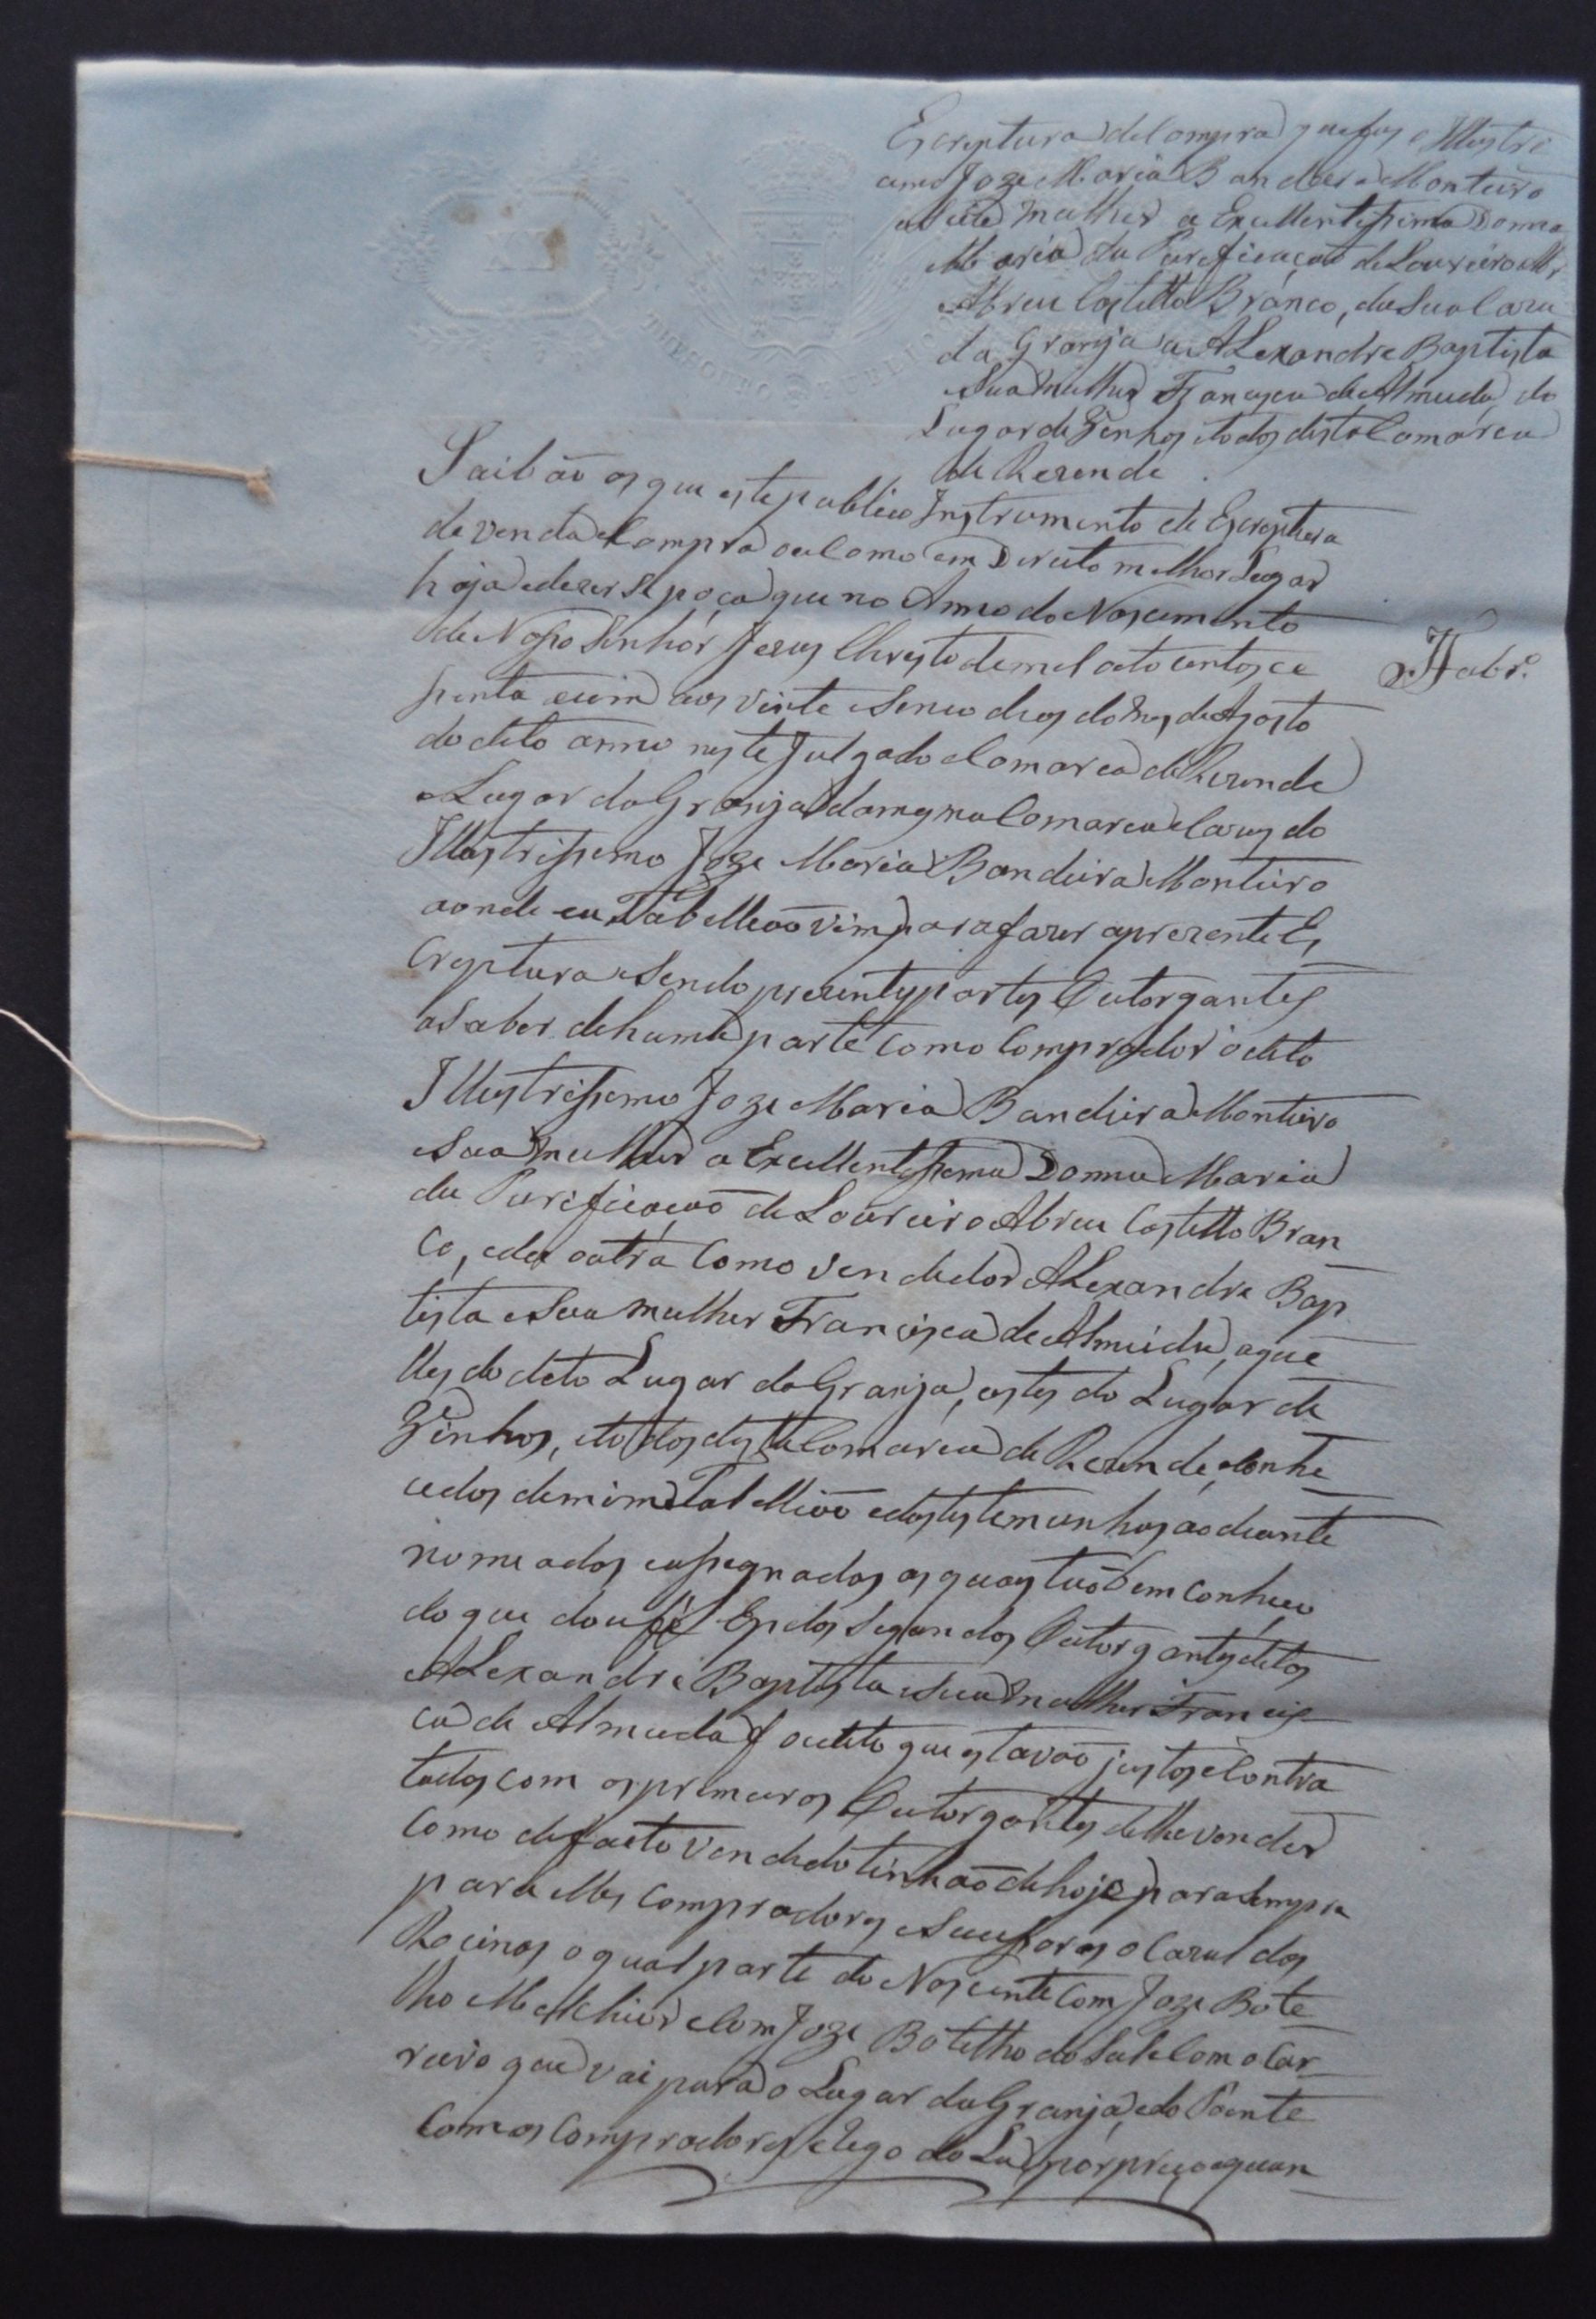 Escreptura de Compra que fas o Illustri
cimo Joze Maria Bandeira Monteiro
e Sua mulher a Excellentissima Donna
Maria da Purificação de Loureiro
Abreu Castello Branco, da Sua Caza
da Granja a ALexandre Baptista
e Sua mulher Francisca de Almeida, do
Lugar de Zinhos, e todos desta Comarca
de Rezende.
THESOURO PUBLICO
Saibão os que este publico Instromento de Escreptura
de venda e Compra ou Como em Direito melhor Lugar
haja e dezer se poça que no Anno do Nascimento
de Nosso Senhor Jezus Christo de mil oito centos ce
senta e um aos vinte e Sinco dias do mes de Agosto
do dito anno neste Julgado e Comarca de Rezende
e Lugar da Granja da mesma Comarca e Cazas do
Illustrissemo Joze Maria Bandeira Monteiro
aonde eu Tabellião vim para fazer aprezente Es
creptura e Sendo prezentes partes Outorgantes
a Saber de huma parte como Comprador o dito
Illustrissemo Joze Maria Bandeira Monteiro
e Sua mulher a Excellentissema Donna Maria
da Purificação de Loureiro Abreu Castello Bran
Co, e da outra Como vendedor ALexandre Bap
tista e Sua mulher Francisca de Almeida, aque
lles do dito Lugar da Granja, e estes do Lugar de
Zinhos, e todos desta Comarca de Rezende, Conhe
cidos de mim Tabellião e das testemunhas ao diante
nomeados e assegnados os quaes tãobem conheço
do que dou fé E pelos Segundos Outorgantes ditos
ALexandre Baptista e Sua mulher Francis
ca de Almeida f oi dito que estavão justos e Contra
tados com os premeiros Outorgantes de lhe vender
Como de facto vendido tinhão de hoje para Sempre
para elles compradores e Sucessores o Cazal dos
Rocinos o qual parte do Nascente Com Joze Bote
lho Melchior e Com Joze Botelho do Sul Com o Car
reiro que vai para o Lugar da Granja e do Poente
Com os Compradores e Lego do Lu por preço e quan